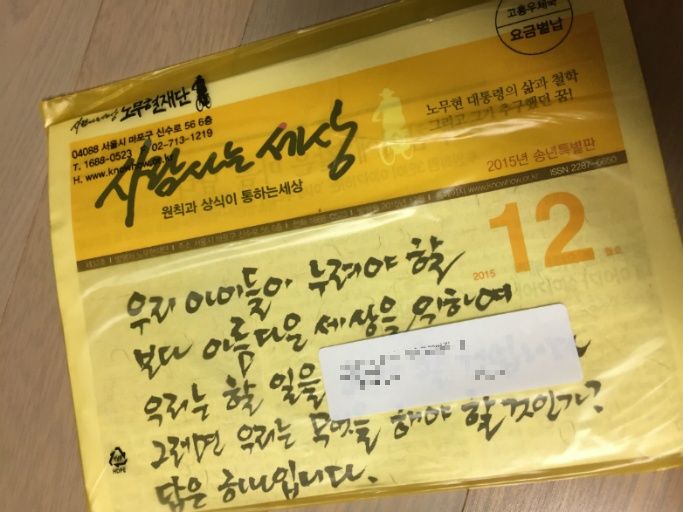 고흥우체국
요금별납
사람사는세상 노무현재단
04088 서울시 마포구 신수로 56 6층
T. 1688-0523 02-713-1219
H. www.knowhow.or.kr
노무현 대통령의 삶과 철학
그리고 그가 추구했던 꿈!
사람사는 세상
원칙과 상식이 통하는세상
2015년 송년특별판
ISSN 2287-
2015
12
우리 아이들이 누려야 할
보다 아름다운 세상을 위하여
우리는 할 일을
그러면 우리는 무엇을 해야 할 것인가?
답은 하나입니다.
HDPE